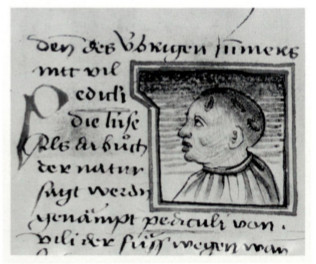 den des übrigen
mit vil
Pediculi
die lüse
Als daz buch
der natur
sagt werden
genampt pediculi von
vili der füsß wegen wan